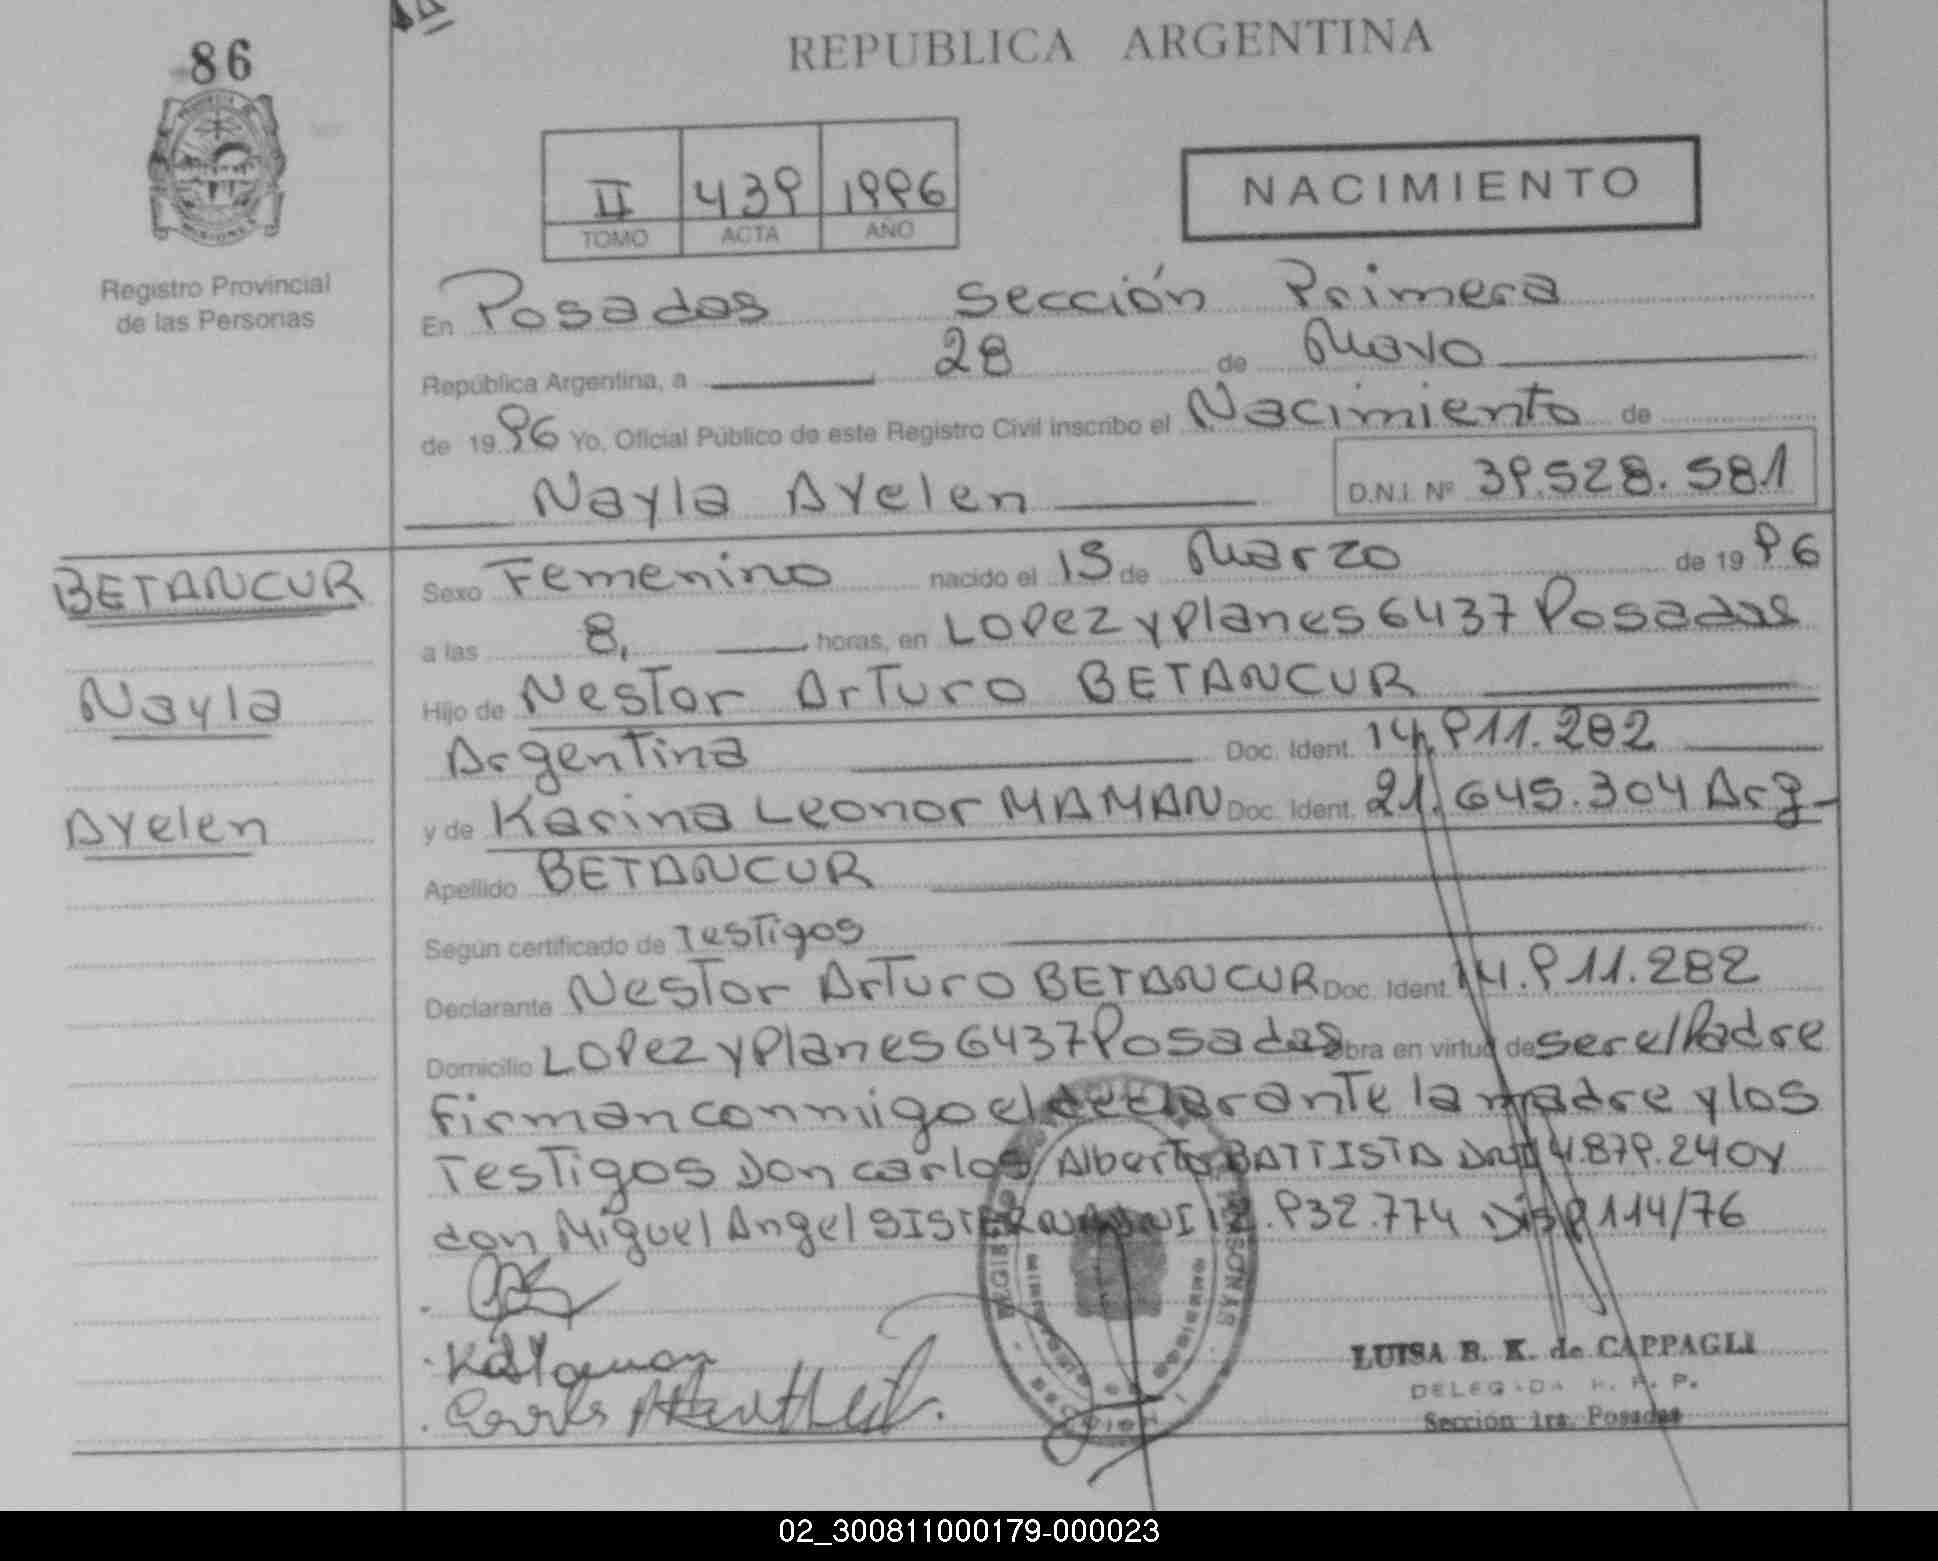 86
REPUBLICA ARGENTINA
II 439 1996
TOMO ACTA AÑO
NACIMIENTO
Registro Provincial
de las Personas
En Posadas Sección Primera
República Argentina, a 28 de Mayo
de 1996 Yo, Oficial Público de este Registro Civil inscribo el Nacimiento de
Nayla Ayelen D.N.I. Nº 39.528.581
BETANCUR
Nayla
Ayelen
Sexo Femenino nacido el 15 de Marzo de 1996
a las 8, horas, en Lopez y Planes 6437 Posadas
Hijo de Nestor Arturo BETANCUR
Argentina Doc. Ident. 14.911.282
y de Karina Leonor MAMAN Doc. Ident. 21.645.304 Arg
Apellido BETANCUR
Según certificado de Testigos
Declarante Nestor Arturo BETANCUR Doc. Ident. 14.911.282
Domicilio Lopez y Planes 6437 Posadas Obra en virtud de ser el Padre
Firman conmigo el declarante la madre y los
Testigos Don Carlos Alberto BATTISTA DNI 4.879.240 y
don Miguel Angel SISTERNA DNI 12.932.774 Disp 114/76
LUISA B. K. de CAPPAGLI
DELEGADA R. P. P.
Sección 1ra. Posadas
02_300811000179-000023